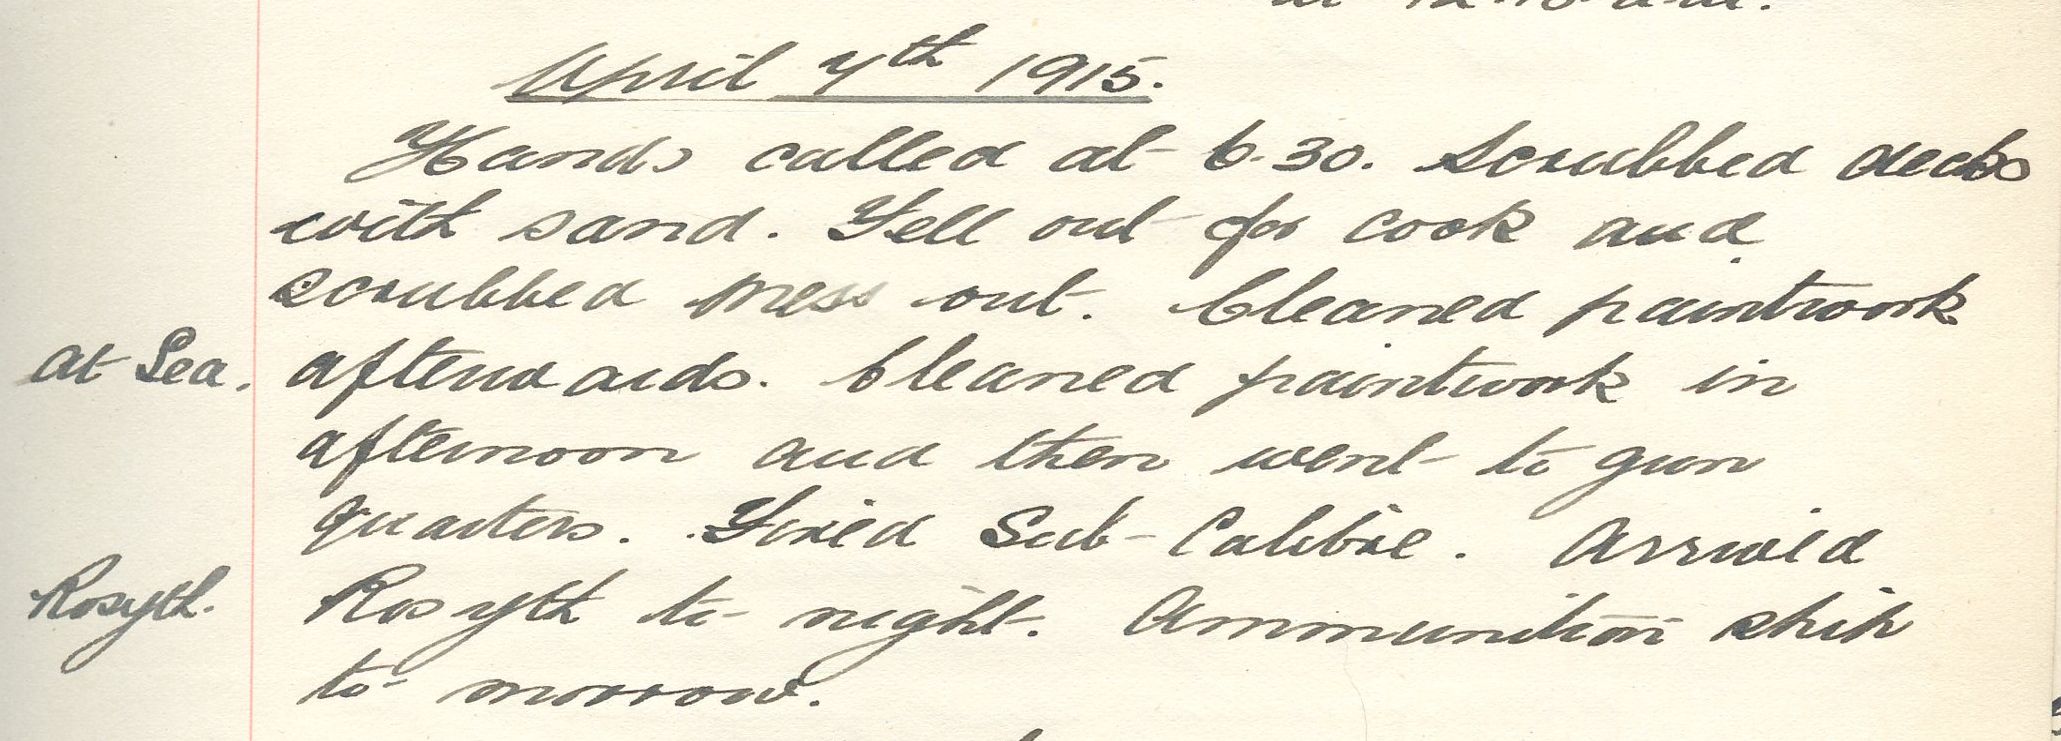 at a.m.
April 7th 1915.
Hands called at 6.30. Scrubbed decks
with sand. Fell out for cook and
scrubbed mess out. Cleaned paintwork
At Sea. afterwards. Cleaned paintwork in
afternoon and then went to gun
quarters. Fired Sub-Calibre. Arrived
Rosyth. Rosyth to-night. Ammunition ship
to-morrow.